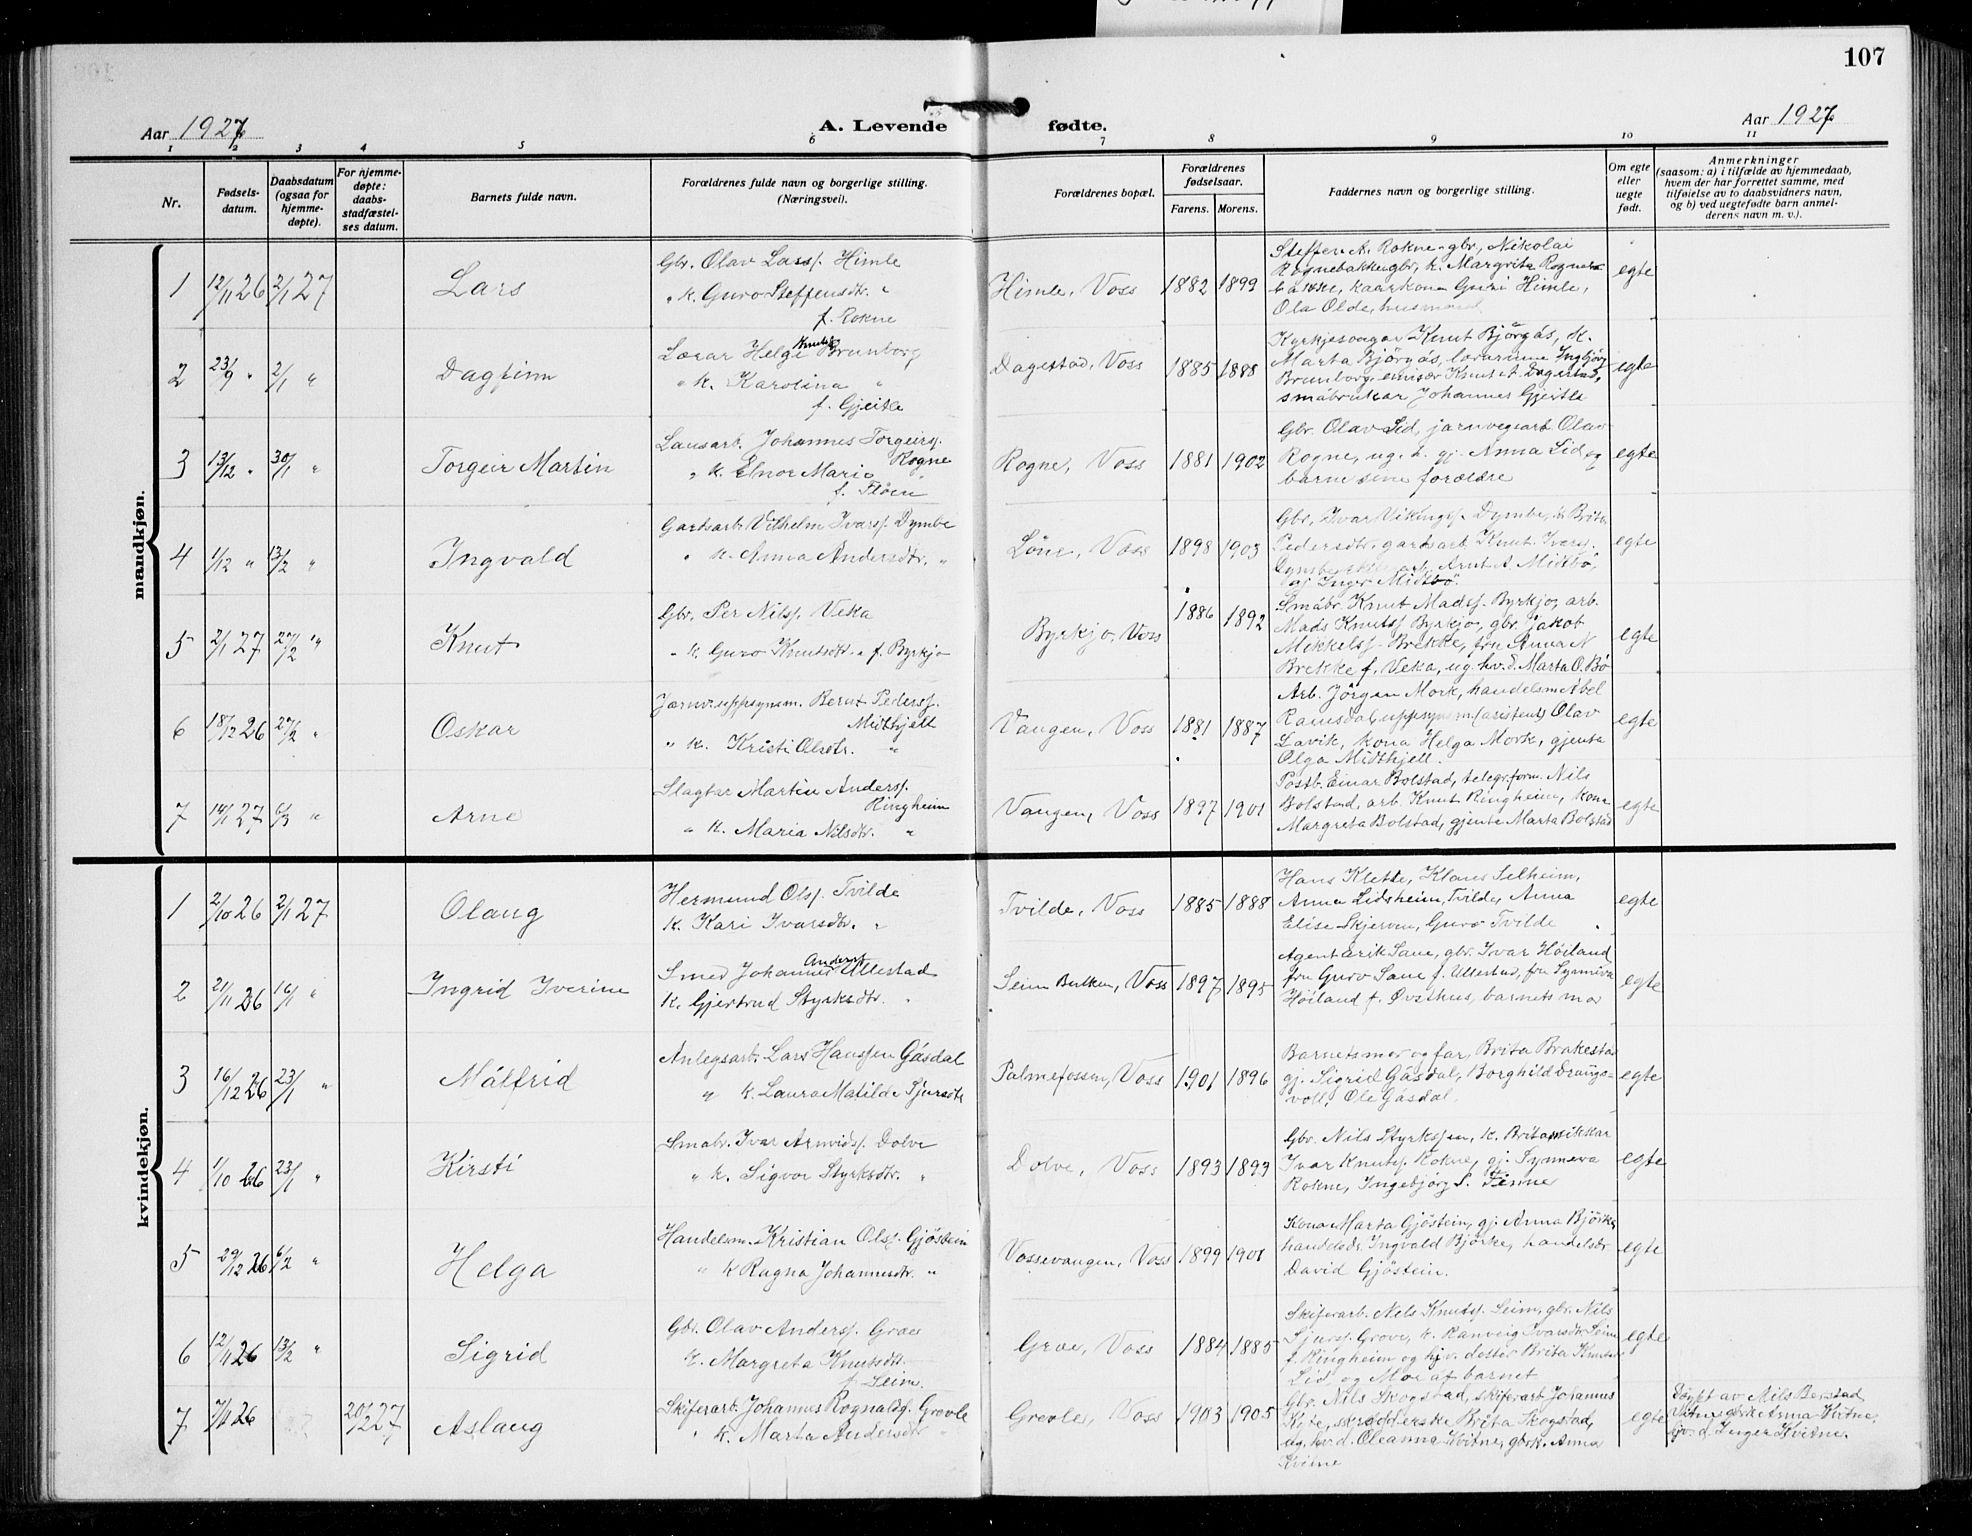 107
Aar 1927
A. Levende
fødte.
Aar 1927
1 2 3 4 5 6 7 8 9 10 11
Nr.
Fødsels-
datum.
Daabsdatum
(ogsaa for
hjemme-
døpte).
For hjemme-
døpte:
daabs-
stadfæstel-
ses datum.
Barnets fulde navn.
Forældrenes fulde navn og borgerlige stilling.
(Næringsvei).
Forældrenes bopæl.
Forældrenes
fødselsaar.
Farens. Morens.
Faddernes navn og borgerlige stilling.
Om egte
eller
uegte
født.
Anmerkninger
(saasom: a) i tilfælde av hjemmedaab,
hvem der har forrettet samme, med
tilføielse av to daabsvidners navn,
og b) ved uegtefødte barn anmel-
derens navn m. v.).
mandkjøn.
1 12/11 26 2/1 27 Lars
Gbr. Olav Larss. Himle
" k. Guro Steffensdtr. "
f. Rokne
Himle, Voss 1882 1899
Steffen A. Rokne gbr, Nikolai
Rognebakke gbr, k. Margrita Rogne-
bakke, kaarkona Guri Himle,
Ola Olde, husmand
egte
2 23/9 " 2/1 " Dagfinn
Lærar Helge Knutss. Brunborg
" k. Karolina "
f. Gjeitle
Dagestad, Voss 1885 1888
Kyrkjesongar Knut Bjørgås, k.
Marta Bjørgås, lærarinne Ingbjørg
Brunborg, emisær Knut A. Dagestad,
småbrukar Johannes Gjeitle
egte
3 13/12 " 30/1 " Torgeir Martin
Lausarb. Johannes Torgeirs.
Rogne
" k. Elnor Marie "
f. Fløen
Rogne, Voss 1881 1902
Gbr. Olav Lid, jarnvegsarb Olav
Rogne, ug. h. gj. Anna Lid og
barne sine forældre
egte
4 1/12 " 13/2 " Ingvald
Gardsarb. Vilhelm Ivarss. Dymbe
" k. Anna Andersdtr. "
Løne, Voss 1898 1903
Gbr, Ivar Vikingss. Dymbe, k Brita
Pedersdtr. gardsarb. Knut Ivars.
Dymbe, arb. Arnt A. Midtbø,
gj Inger Midtbø.
egte
5 2/1 27 27/2 " Knut
Gbr. Per Nilss. Veka
" k. Guro Knutsdtr. " f. Byrkjo
Byrkjo, Voss 1886 1892
Småbr. Knut Madss. Byrkjo, arb.
Mads Knutss. Byrkjo, gbr. Jakob
Mikkelss. Brekke, fru Anna N
Brekke f. Veka, ug. hv. d. Marta O. Bø
egte
6 18/12 26 27/2 " Oskar
Jærnv.uppsynsm. Bernt Pederss.
Midthjell
" k. Kristi Olsdtr. "
Vangen, Voss 1881 1887
Arb. Jörgen Mork, handelsm Abel
Ramsdal, uppsynsm. (asistent) Olav
Lavik, kona Helga Mork, gjenta
Olga Midthjell.
egte
7 14/1 27 6/3 " Arne
Slagtar Martin Anderss.
Ringheim
" k. Maria Nilsdtr. "
Vangen, Voss 1897 1901
Postb. Einar Bolstad, telegr.form. Nils
Bolstad, arb. Knut Ringheim, kona
Margreta Bolstad, gjenta Marta Bolstad
egte
kvindekjøn.
1 2/10 26 2/1 27 Olaug
Hermund Olss. Tvilde
k. Kari Ivarsdtr. "
Tvilde, Voss 1885 1888
Hans Klette, Klaus Selheim,
Anna Lidsheim, Tvilde, Anna
Elise Skjerven, Guro Tvilde
egte
2 21/11 26 16/1 " Ingrid Iverine
Smed Johannes Anderss. Ullestad
k. Gjertrud Styrksdtr. "
Seim Bulken, Voss 1897 1895
Agent Erik Sane, gbr. Ivar Höiland
fru Guro Sane f. Ullestad, fru Synneva
Höiland f. Øvsthus, barnets mor
egte
3 16/12 26 23/1 " Målfrid
Anlegsarb. Lars Hanssen Gåsdal
" k. Laura Matilde Sjursdtr
Palmefossen, Voss 1901 1896
Barnets mor og far, Brita Brakestad
gj. Sigrid Gåsdal, Borghild Drangs-
voll, Ole Gåsdal.
egte
4 1/10 26 23/1 " Kirsti
Småbr. Ivar Arnvidss. Dolve
" k. Sigvor Styrksdtr. "
Dolve, Voss 1893 1893
Gbr. Nils Styrkssen, k. Brita,
Ivar Knutss. Rokne, gj. Synneva
Rokne, Ingebjørg S. Finne
egte
5 29/12 26 6/2 " Helga
Handelsm. Kristian Olss. Gjøstein
" k Ragna Johannesdtr. "
Vossevangen, Voss 1899 1901
Kona Marta Gjøstein, gj. Anna Bjørke,
handelsdr. Ingvald Bjørke, handelsdr.
David Gjøstein.
egte
6 12/11 26 13/2 " Sigrid
Gbr. Olav Anderss. Groe
k. Margreta Knutsdtr.
f. Seim.
Groe, Voss 1884 1885
Skiferarb. Nels Knutss. Seim, gbr. Nils
Sjurss. Grove, k. Ranveig Ivarsdtr Seim
f. Ringheim og hjv. dotter Brita Knutsdr
Lid, og Moe af barnet
egte
7 7/11 26 20/2 27 Aslaug
Skiferarb. Johannes Rognalds. Grevle
" k. Marta Andersdtr "
Grevle, Voss 1903 1905
Gbr. Nils Skogstad, skiferarb. Johannes
Kite, skrædderske Brita Skogstad,
ug. hv. d. Oleanna Kvitne, gbrk. Anna
Kvitne
egte
Døypt av Nils Berstad
Vitne gbrk Anna Kvitne,
hjv. d. Inger Kvitne.